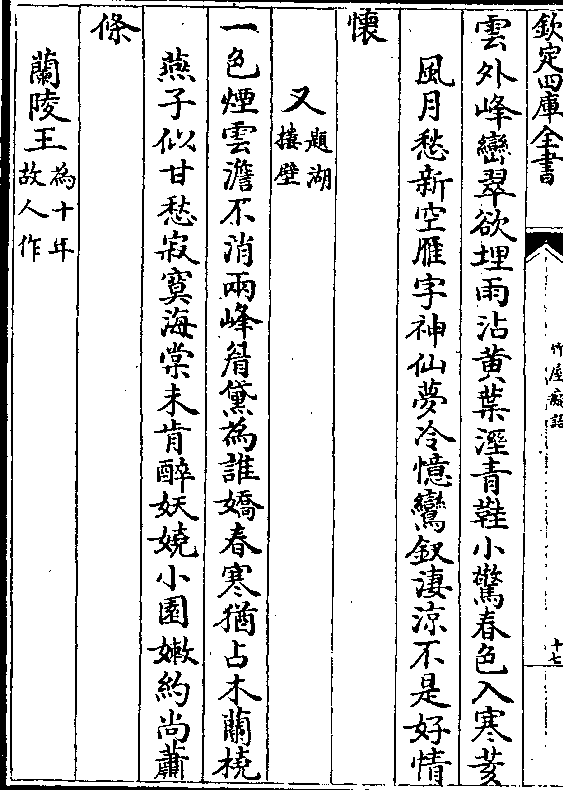 欽定四庫全書
竹屋癡語
十七
雲外峰巒翠欲埋雨沾黄葉溼青鞋小驚春色入寒荄
風月愁新空雁字神仙夢冷憶鸞釵淒涼不是好情
懷
又題湖樓壁
一色煙雲澹不消兩峰眉黛為誰嬌春寒猶占木蘭橈
燕子似甘愁寂寞海棠未肯醉妖嬈小園嫩約尚蕭
條
蘭陵王為十年故人作